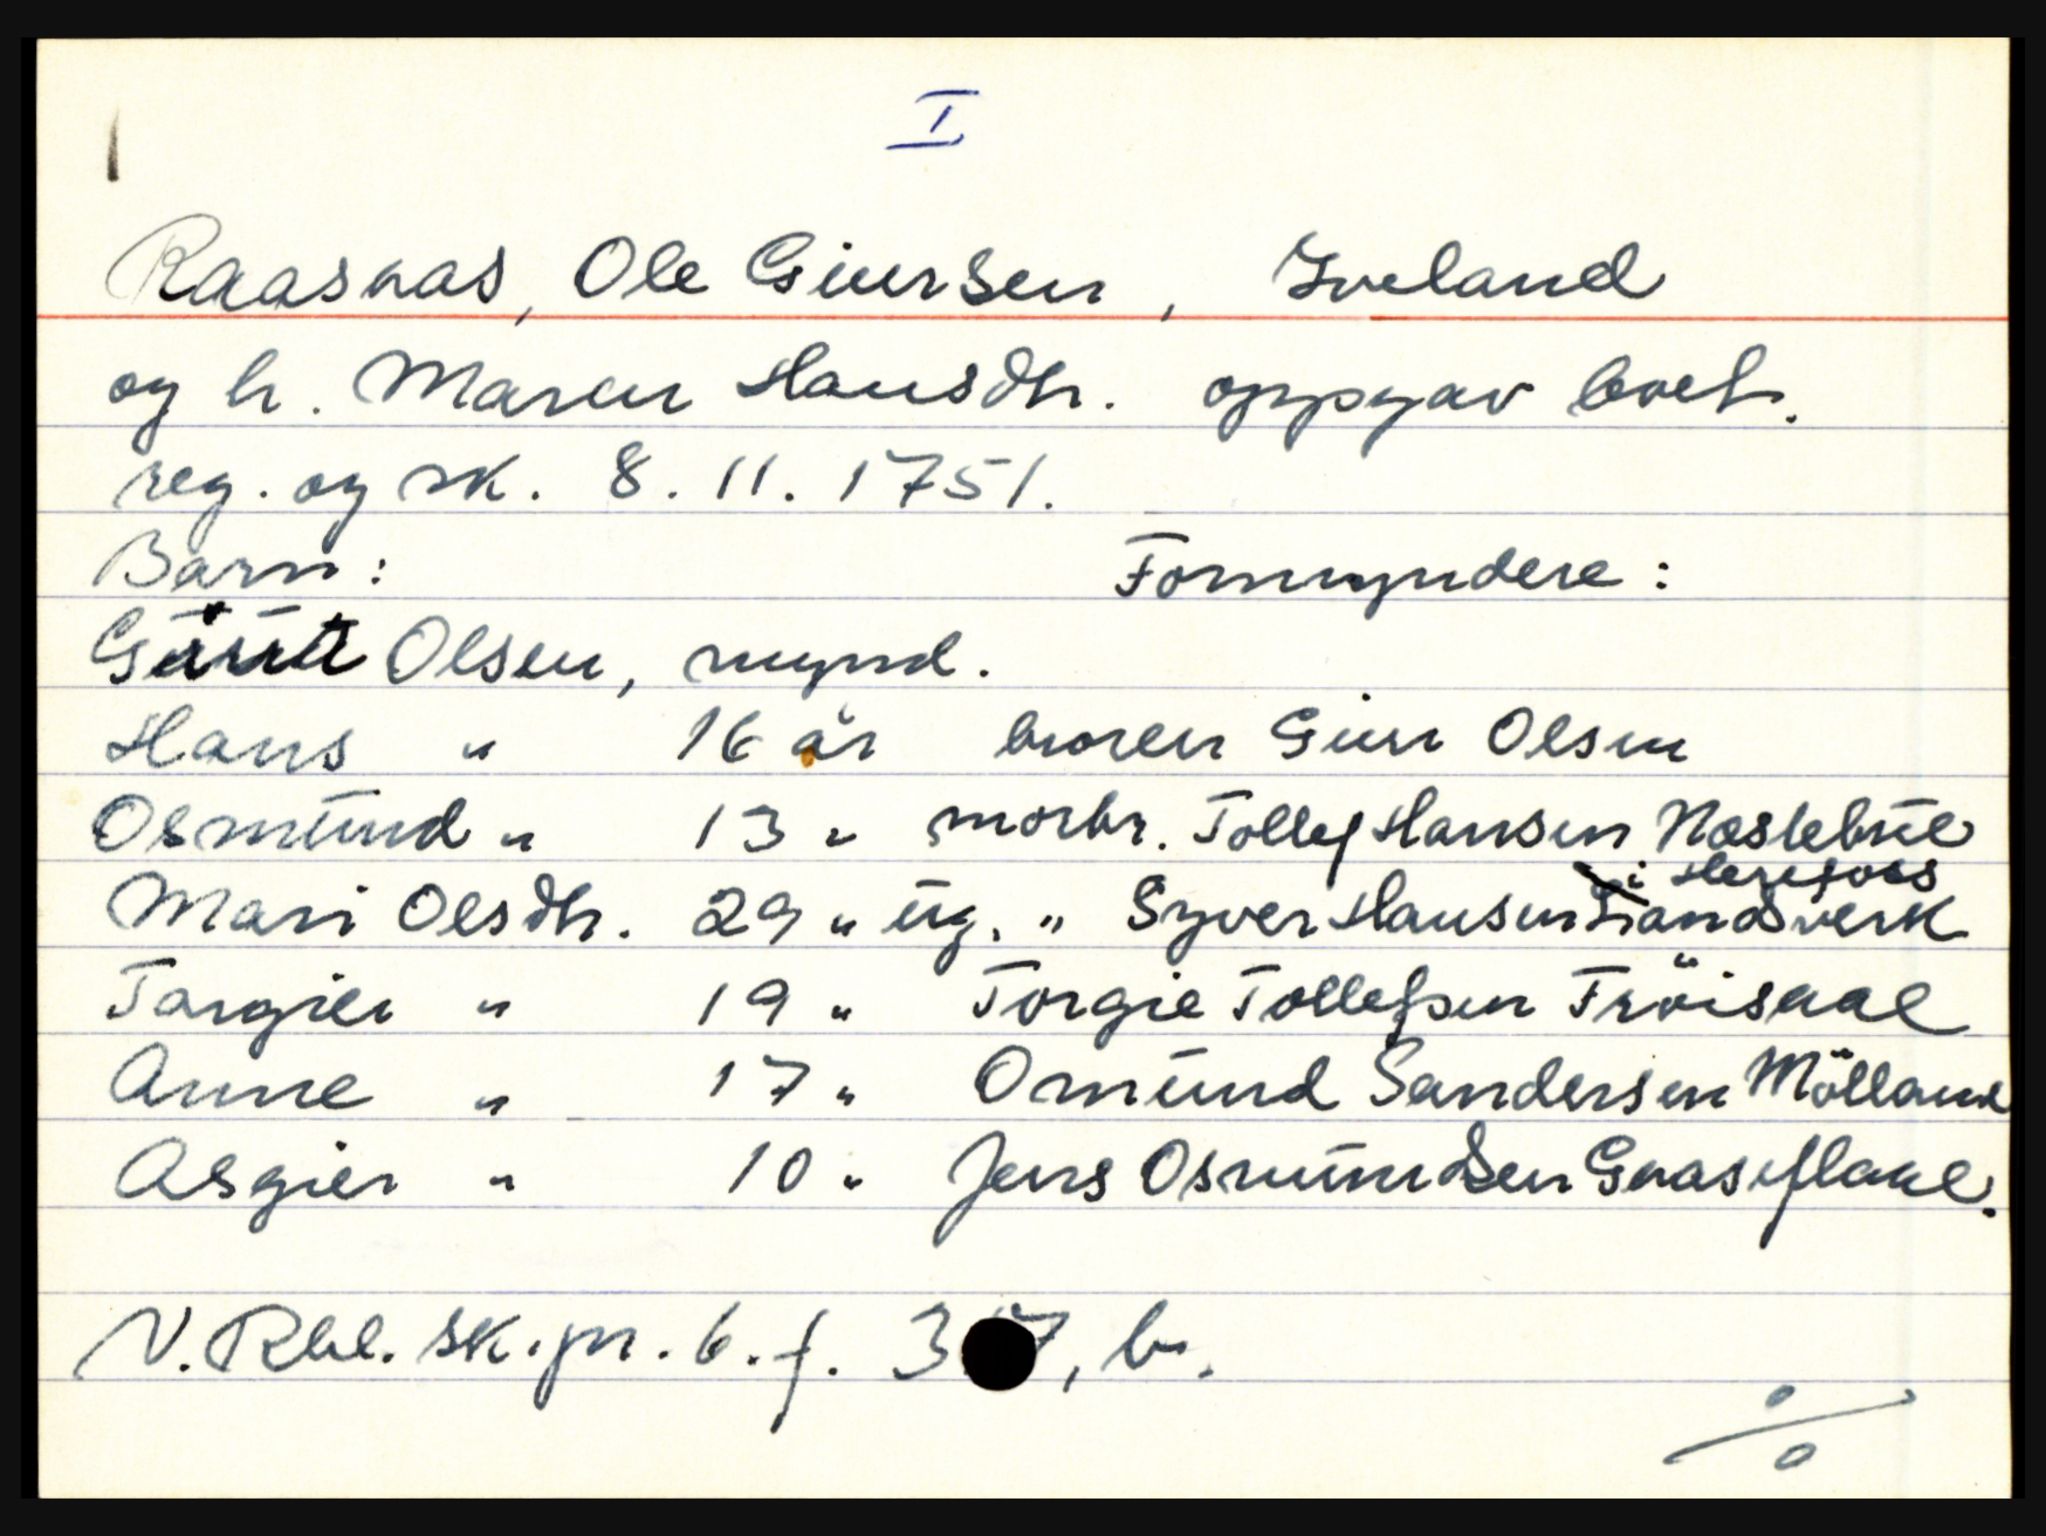 I
Raasnas, Ole Giursen, Iveland
og h. Maren Hansdtr. oppgav boet.
reg. og sk. 8. 11. 1751.
Barn: Formyndere:
Olsen, mynd.
Hans " 16 år broren Giur Olsen
Osmund " 13 " morbr. Tollef Hansen Næslebue
i Herefoss
Mari Olsdtr. 29 " ug. " Syver Hansen Landsverk
Torgier " 19 " Torgie Tollefsen Fröisaal
Anne " 17 " Omund Sandersen Mölland
Asgier " 10 " Jens Osmundsen Gaaseflaae.
N. Rbl. sk. pr. 6. f. 3 7, b.